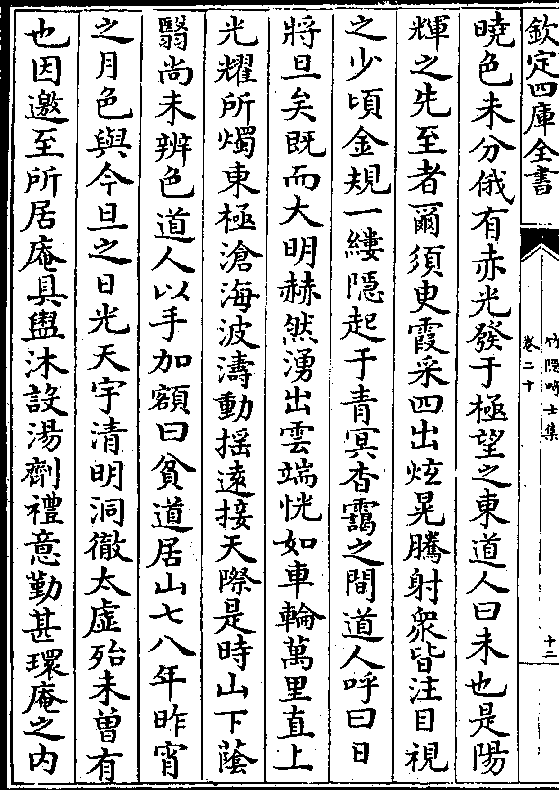 欽定四庫全書
竹隱畸士集
卷二十
十二
曉色未分俄有赤光發于極望之東道人曰未也是陽
輝之先至者爾須臾霞采四出炫晃騰射衆皆注目視
之少頃金規一縷隱起于青冥杳靄之間道人呼曰日
將旦矣既而大明赫然湧出雲端恍如車輪萬里直上
光耀所燭東極滄海波濤動揺逺接天際是時山下蔭
翳尚未辨色道人以手加額曰貧道居山七八年昨宵
之月色與今旦之日光天宇清明洞徹太虚殆未曽有
也因邀至所居庵具盥沐設湯劑禮意勤甚環庵之内